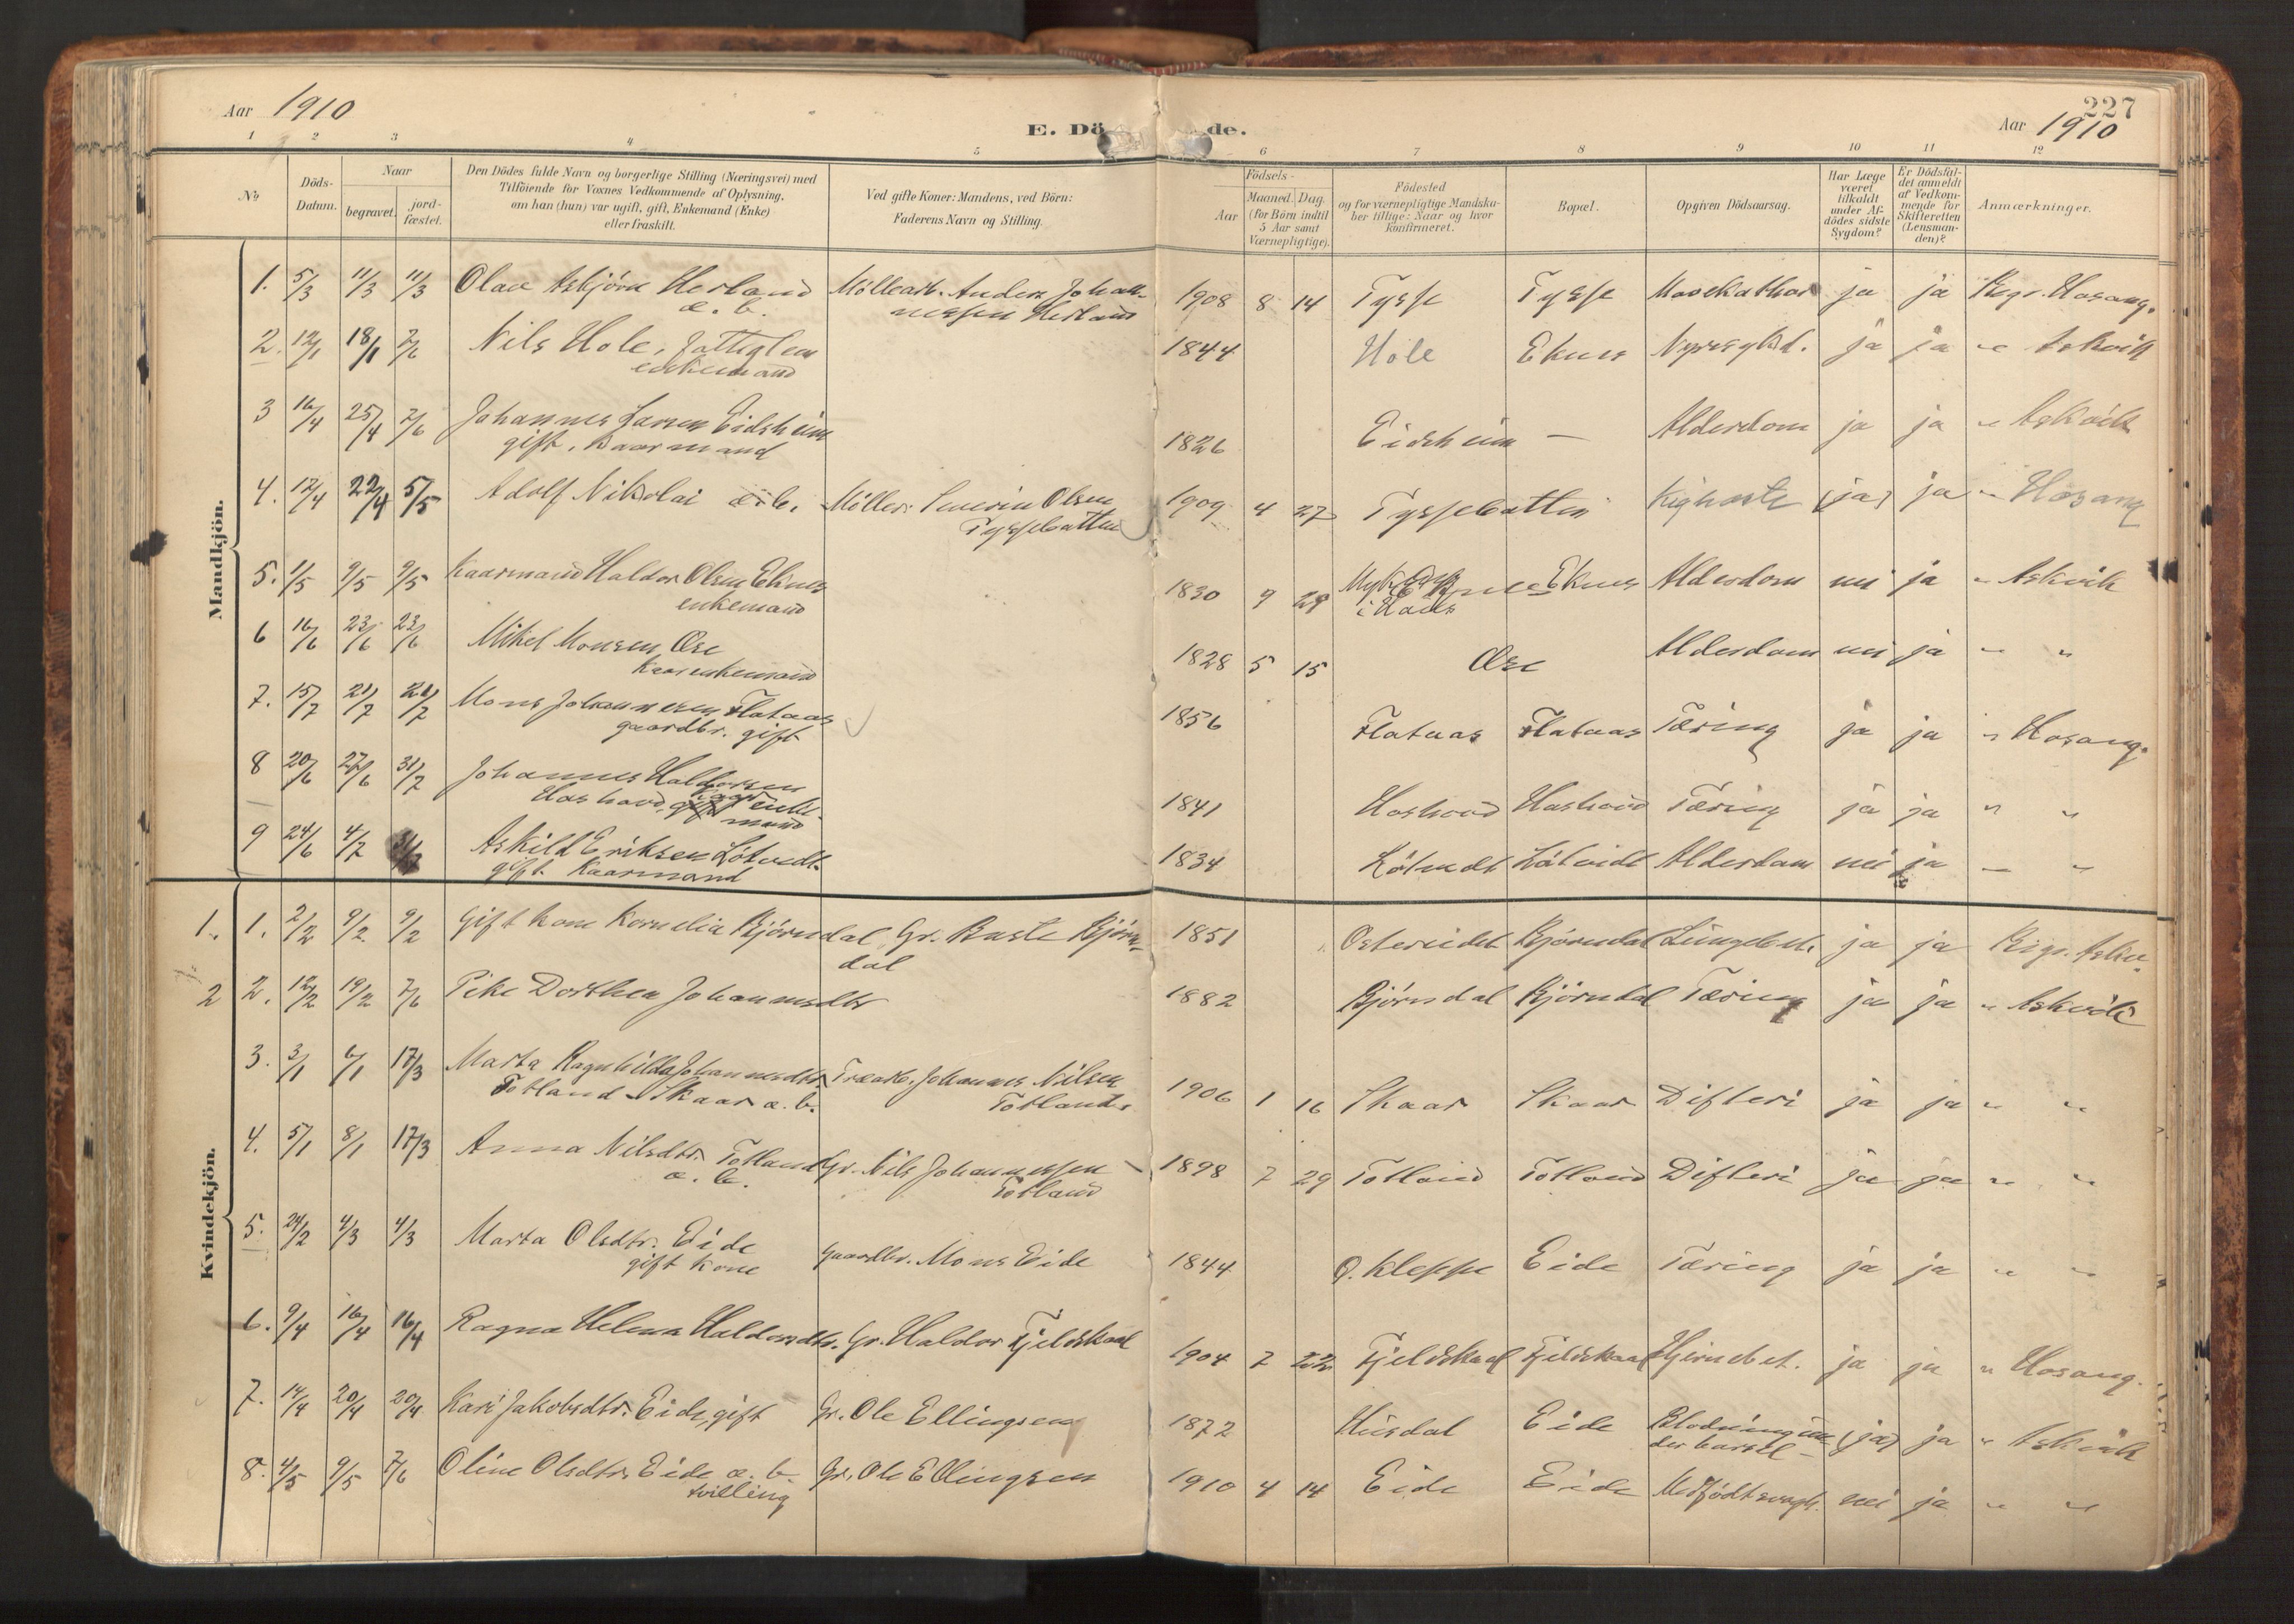 Aar 1910
227
E. Dö de.
Aar 1910
1 2 3 4 5 6 7 8 9 10 11 12
No
Döds-Datum.
Naar
begravet.
jord-fæstet.
Den Dödes fulde Navn og borgerlige Stilling (Næringsvei) med
Tilföiende for Voxnes Vedkommende af Oplysning,
om han (hun) var ugift, gift, Enkemand (Enke)
eller fraskilt.
Ved gifte Koner: Mandens, ved Börn:
Faderens Navn og Stilling.
Födsels-
Aar
Maaned. Dag.
(for Börn indtil
5 Aar samt
Værnepligtige).
Födested
og for værnepligtige Mandska-
ber tillige: Naar og hvor
konfirmeret.
Bopæl.
Opgiven Dödsaarsag.
Har Læge
været
tilkaldt
under Af-
dödes sidste
Sygdom?
Er Dödsfal-
det anmeldt
af Vedkom-
mende for
Skifteretten
(Lensman-
den)?
Anmærkninger.
Mandkjön.
1. 5/3 11/3 11/3 Olav Asbjörn Herland Möllearb. Anders Johan- 1908 8 14 Tysse Tysse ja ja Begr. Hosang.
æ. b. nessen Herland
2. 12/1 18/1 7/6 Nils Hole, fattiglem 1844 Hole Eknes Nyresygd. ja ja " Askvik
enkemand
3 16/4 25/4 7/6 Johannes Larsen Eidsheim 1826 Eidsheim — Alderdom ja ja " Askvik
gift, kaarmand
4. 12/4 22/4 5/5 Adolf Nikolai æ. b. Möller Severin Olsen 1909 4 27 Tyssebotten Kighoste (ja) ja " Hosang
Tyssebotten
5. 1/5 9/5 9/5 Kaarmand Haldor Olsen Eknes 1830 9 29 Eknes Alderdom nei ja " Askvik
enkemand i Haus
6 16/6 23/6 23/6 Mikel Monsen Øse 1828 5 15 Øse Alderdom nei ja " "
Kaarenkemand
7. 15/7 21/7 21/7 Mons Johannesen Flataas 1856 Flataas Flataas Tæring ja ja " Hosang.
gaardbr. gift
8 20/6 27/6 31/7 Johannes Haldorsen 1841 Tæring ja ja " "
enke-
mand
9 24/6 4/7 31/7 Askild Eriksen Lötvedt 1834 Lötvedt Lötveidt Alderdom nei ja — "
gift. Kaarmand
Kvindekjön.
1. 1. 2/2 9/2 9/2 Gift kone Kornelia Bjørndal Gr. Baste Bjørn- 1851 Ostereidet Bjørndal Lungebet. ja ja Begr. Askv.
dal
2 2. 12/2 19/2 7/6 Pike Dorthea Johannesdtr 1882 Bjørndal Bjørndal Tæring ja ja " Askvik
3. 3/1 6/1 17/3 Marta Ragnhilda Johannesdtr. Træarb. Johannes Nilsen 1906 1 16 Skaar Skaar Difteri ja ja " "
Totland - Skaar æ. b. Totland
4. 5/1 8/1 17/3 Anna Nilsdtr. Totland Gr. Nils Johannessen 1898 7 29 Totland Totland Difteri ja ja " "
æ. b. Totland
5. 24/2 4/3 4/3 Marta Olsdtr. Eide Gaardbr. Mons Eide 1844 O. Kleppe Eide Tæring ja ja " "
gift kone
6. 9/4 16/4 16/4 Ragna Helena Haldorsdtr. Gr. Haldor Fjeldskaal 1904 7 22 Fjeldskaal Fjeldskaal Hjernebet. ja ja " Hosang.
7. 14/4 20/4 20/4 Kari Jakobsdtr. Eide, gift Gr. Ole Ellingsen 1872 Husdal Eide Blødning un- (ja) ja " Askvik
der barsel —
8. 4/5 9/5 7/6 Oline Olsdtr. Eide æ. b. Gr. Ole Ellingsen 1910 4 14 Eide Eide Medfødt svagh. nei ja " "
tvilling